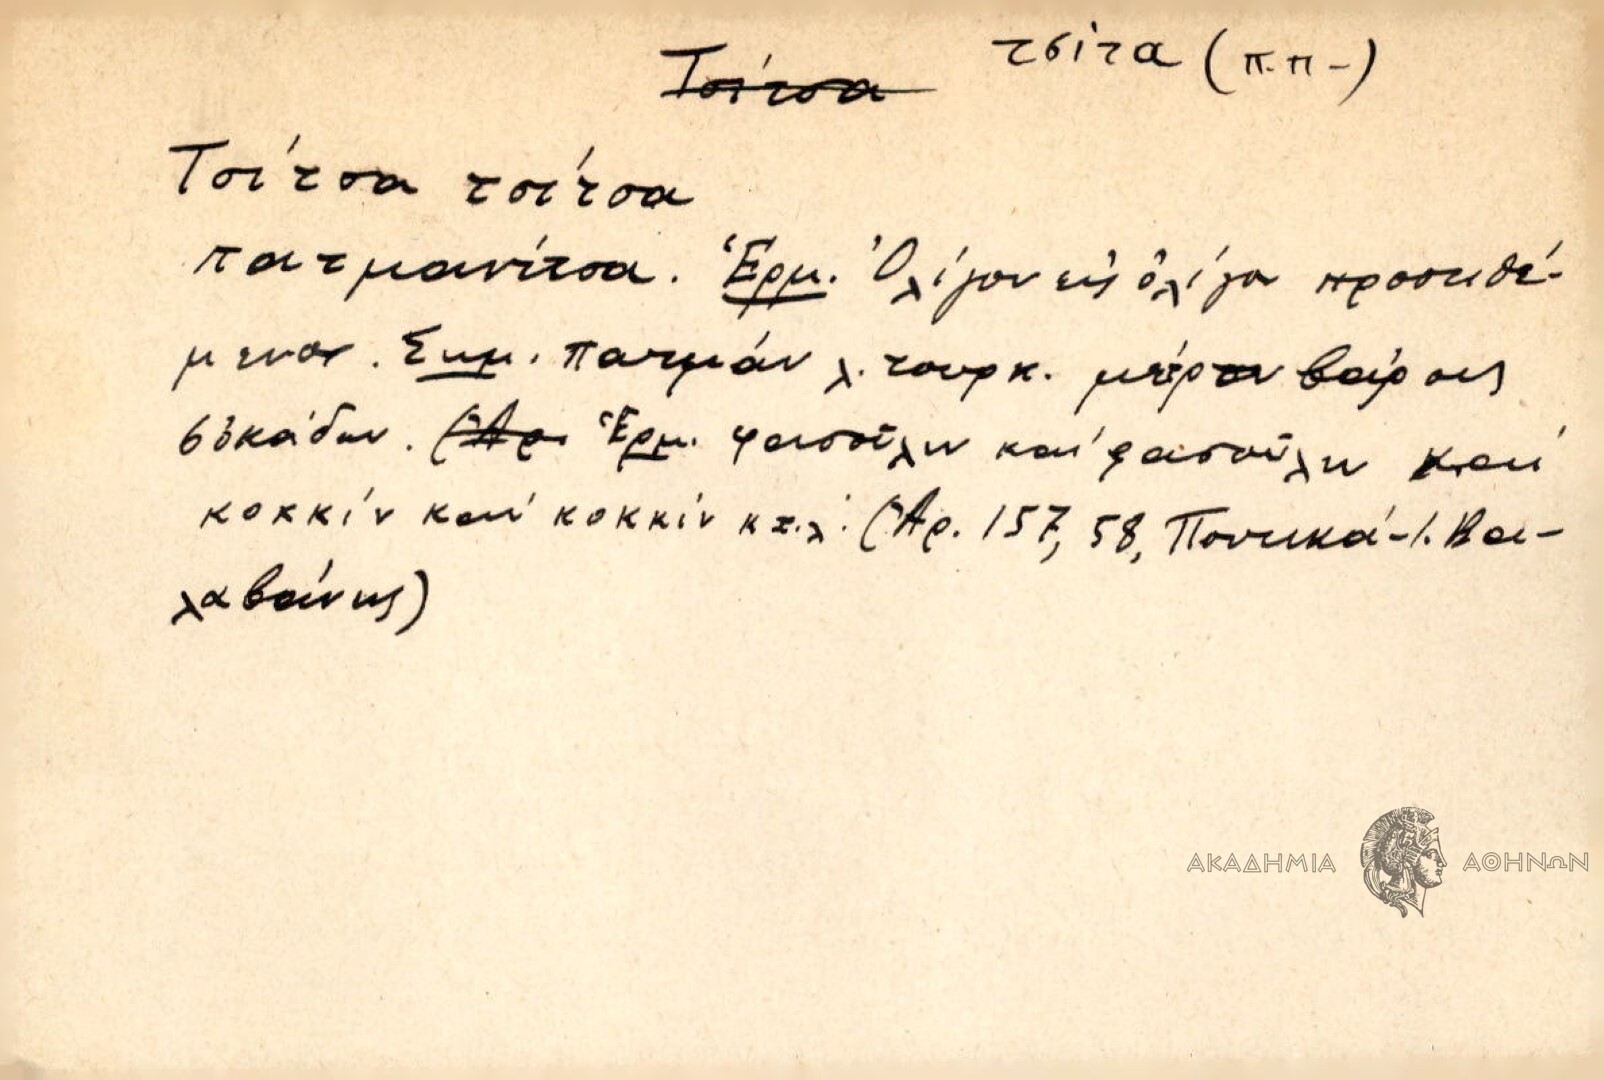 Τσίτσα τσίτα (π.π-)
Τσίτσα τσίτσα
πατμανίτσα. Ἑρμ. Ὀλίγον εἰς ὀλίγον προστιθέ-
μενον. Σημ. πατμάν λ. τουρκ. μέτρον βάρους
6 ὀκάδων. (Ἀρ. Ἑρμ. φασοῦλιν καί φασοῦλιν καί
κοκκίν καί κοκκίν κτ.λ. (Ἀρ. 157, 58, Ποντικά-Ι. Βα-
λαβάνης)
ΑΚΑΔΗΜΙΑ ΑΘΗΝΩΝ